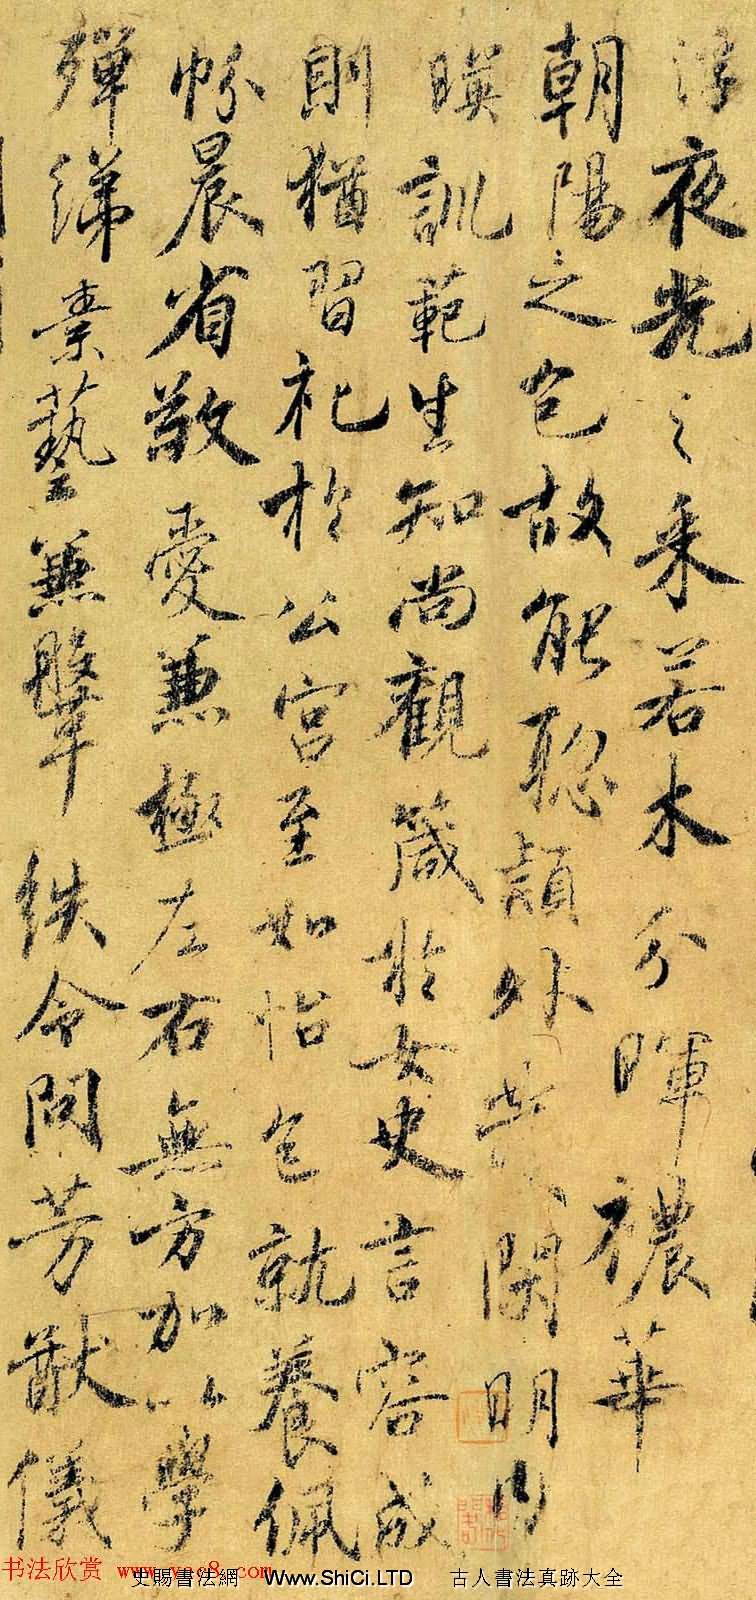 浮夜光之采若木分暉穠華
朝陽之色故能聰穎外發閑明内
暎訓範生知尚觀箴於女史言容成
則猶習礼於公宮至如怡色就養佩
帉晨省敬愛兼極左右無方加以學
殫綈素藝兼鞶紩令問芳猷儀
书法欣赏 www.yac8.com
史賜書法網 Www.ShiCi.LTD 古人書法真跡大全